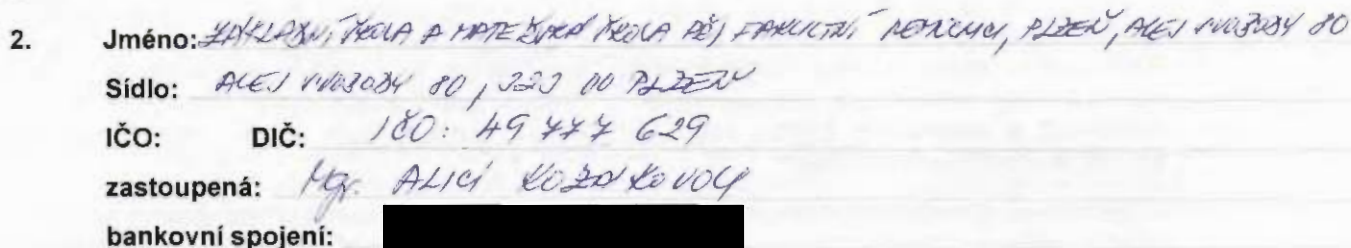 2. Jméno: ZÁKLADNÍ ŠKOLA A MATEŘSKÁ ŠKOLA PŘI FAKULTNÍ NEMOCNICI, PLZEŇ, ALEJ SVOBODY 80
Sídlo: ALEJ SVOBODY 80, 323 00 PLZEŇ
IČO: DIČ: IČO: 49 777 629
zastoupená: Mgr. ALICÍ KOZÁKOVOU
bankovní spojení: